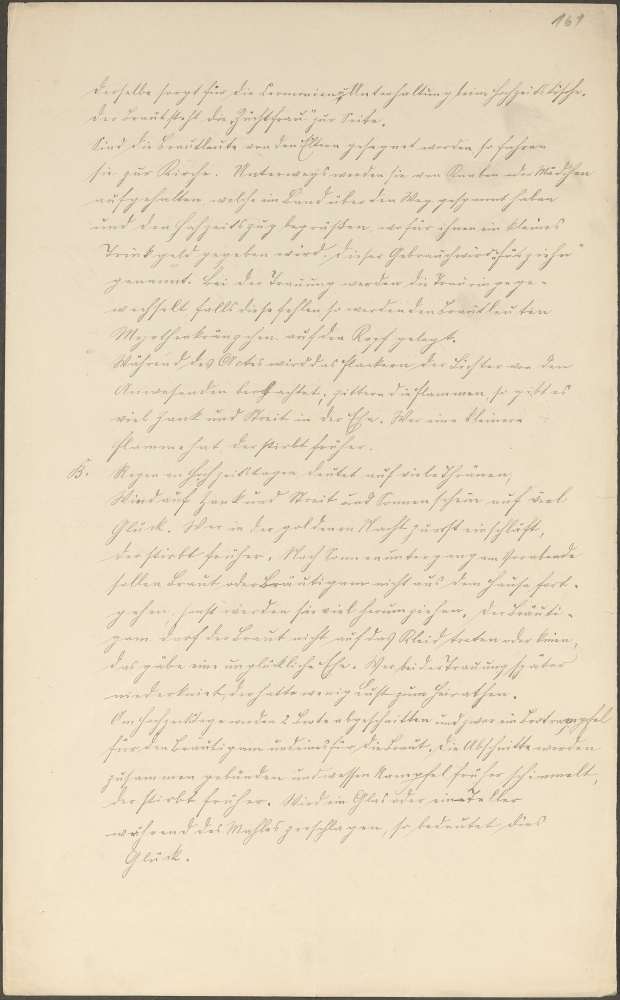 161
Derselbe sorgt für die Ceremonien u. Unterhaltung beim Hochzeitstische.
Der Braut steht die „Zuchtfrau" zur Seite.
Sind die Brautleute von den Eltern gesegnet worden so fahren
sie zur Kirche. Unterwegs werden sie von Knaben oder Mädchen
aufgehalten, welche ein Band über den Weg gespannt haben
und den Hochzeitszug begrüßen, wofür ihnen ein kleines
Trinkgeld gegeben wird. Dieser Gebrauch wird
genannt. Bei der Trauung werden die Trauringe ge-
wechselt falls diese fehlen so werden den Brautleuten
Myrthenkränzchen auf den Kopf gelegt.
Während des Actes wird das Flackern der Lichter von den
Anwesenden beobachtet, zittern die Flammen, so gibt es
viel Zank und Streit in der Ehe. Wer eine kleinere
Flamme hat der stirbt früher.
B. Regen am Hochzeitstage deutet auf viele Thränen,
Wind auf Zank und Streit und Sonnenschein auf viel
Glück. Wer in der goldenen Nacht zuerst einschläft,
der stirbt früher. Nach Sonnenuntergang am Vorabende
sollen Braut oder Bräutigam nicht aus dem Hause fort-
gehen, sonst werden sie viel herumziehen. Der Bräuti-
gam darf der Braut nicht auf das Kleid treten oder knien,
das gäbe eine unglückliche Ehe. Wer bei der Trauung später
niederkniet, der hatte wenig Lust zum Heirathen.
Am Hochzeitstage werden 2 Brote abgeschnitten und zwar ein Brotrampfel
für den Bräutigam und eines für die Braut. Die Abschnitte werden
zusammen gebunden und wessen Rampfel früher schimmelt,
der stirbt früher. Wird ein Glas oder ein Teller
während des Mahles zerschlagen, so bedeutet dies
Glück.